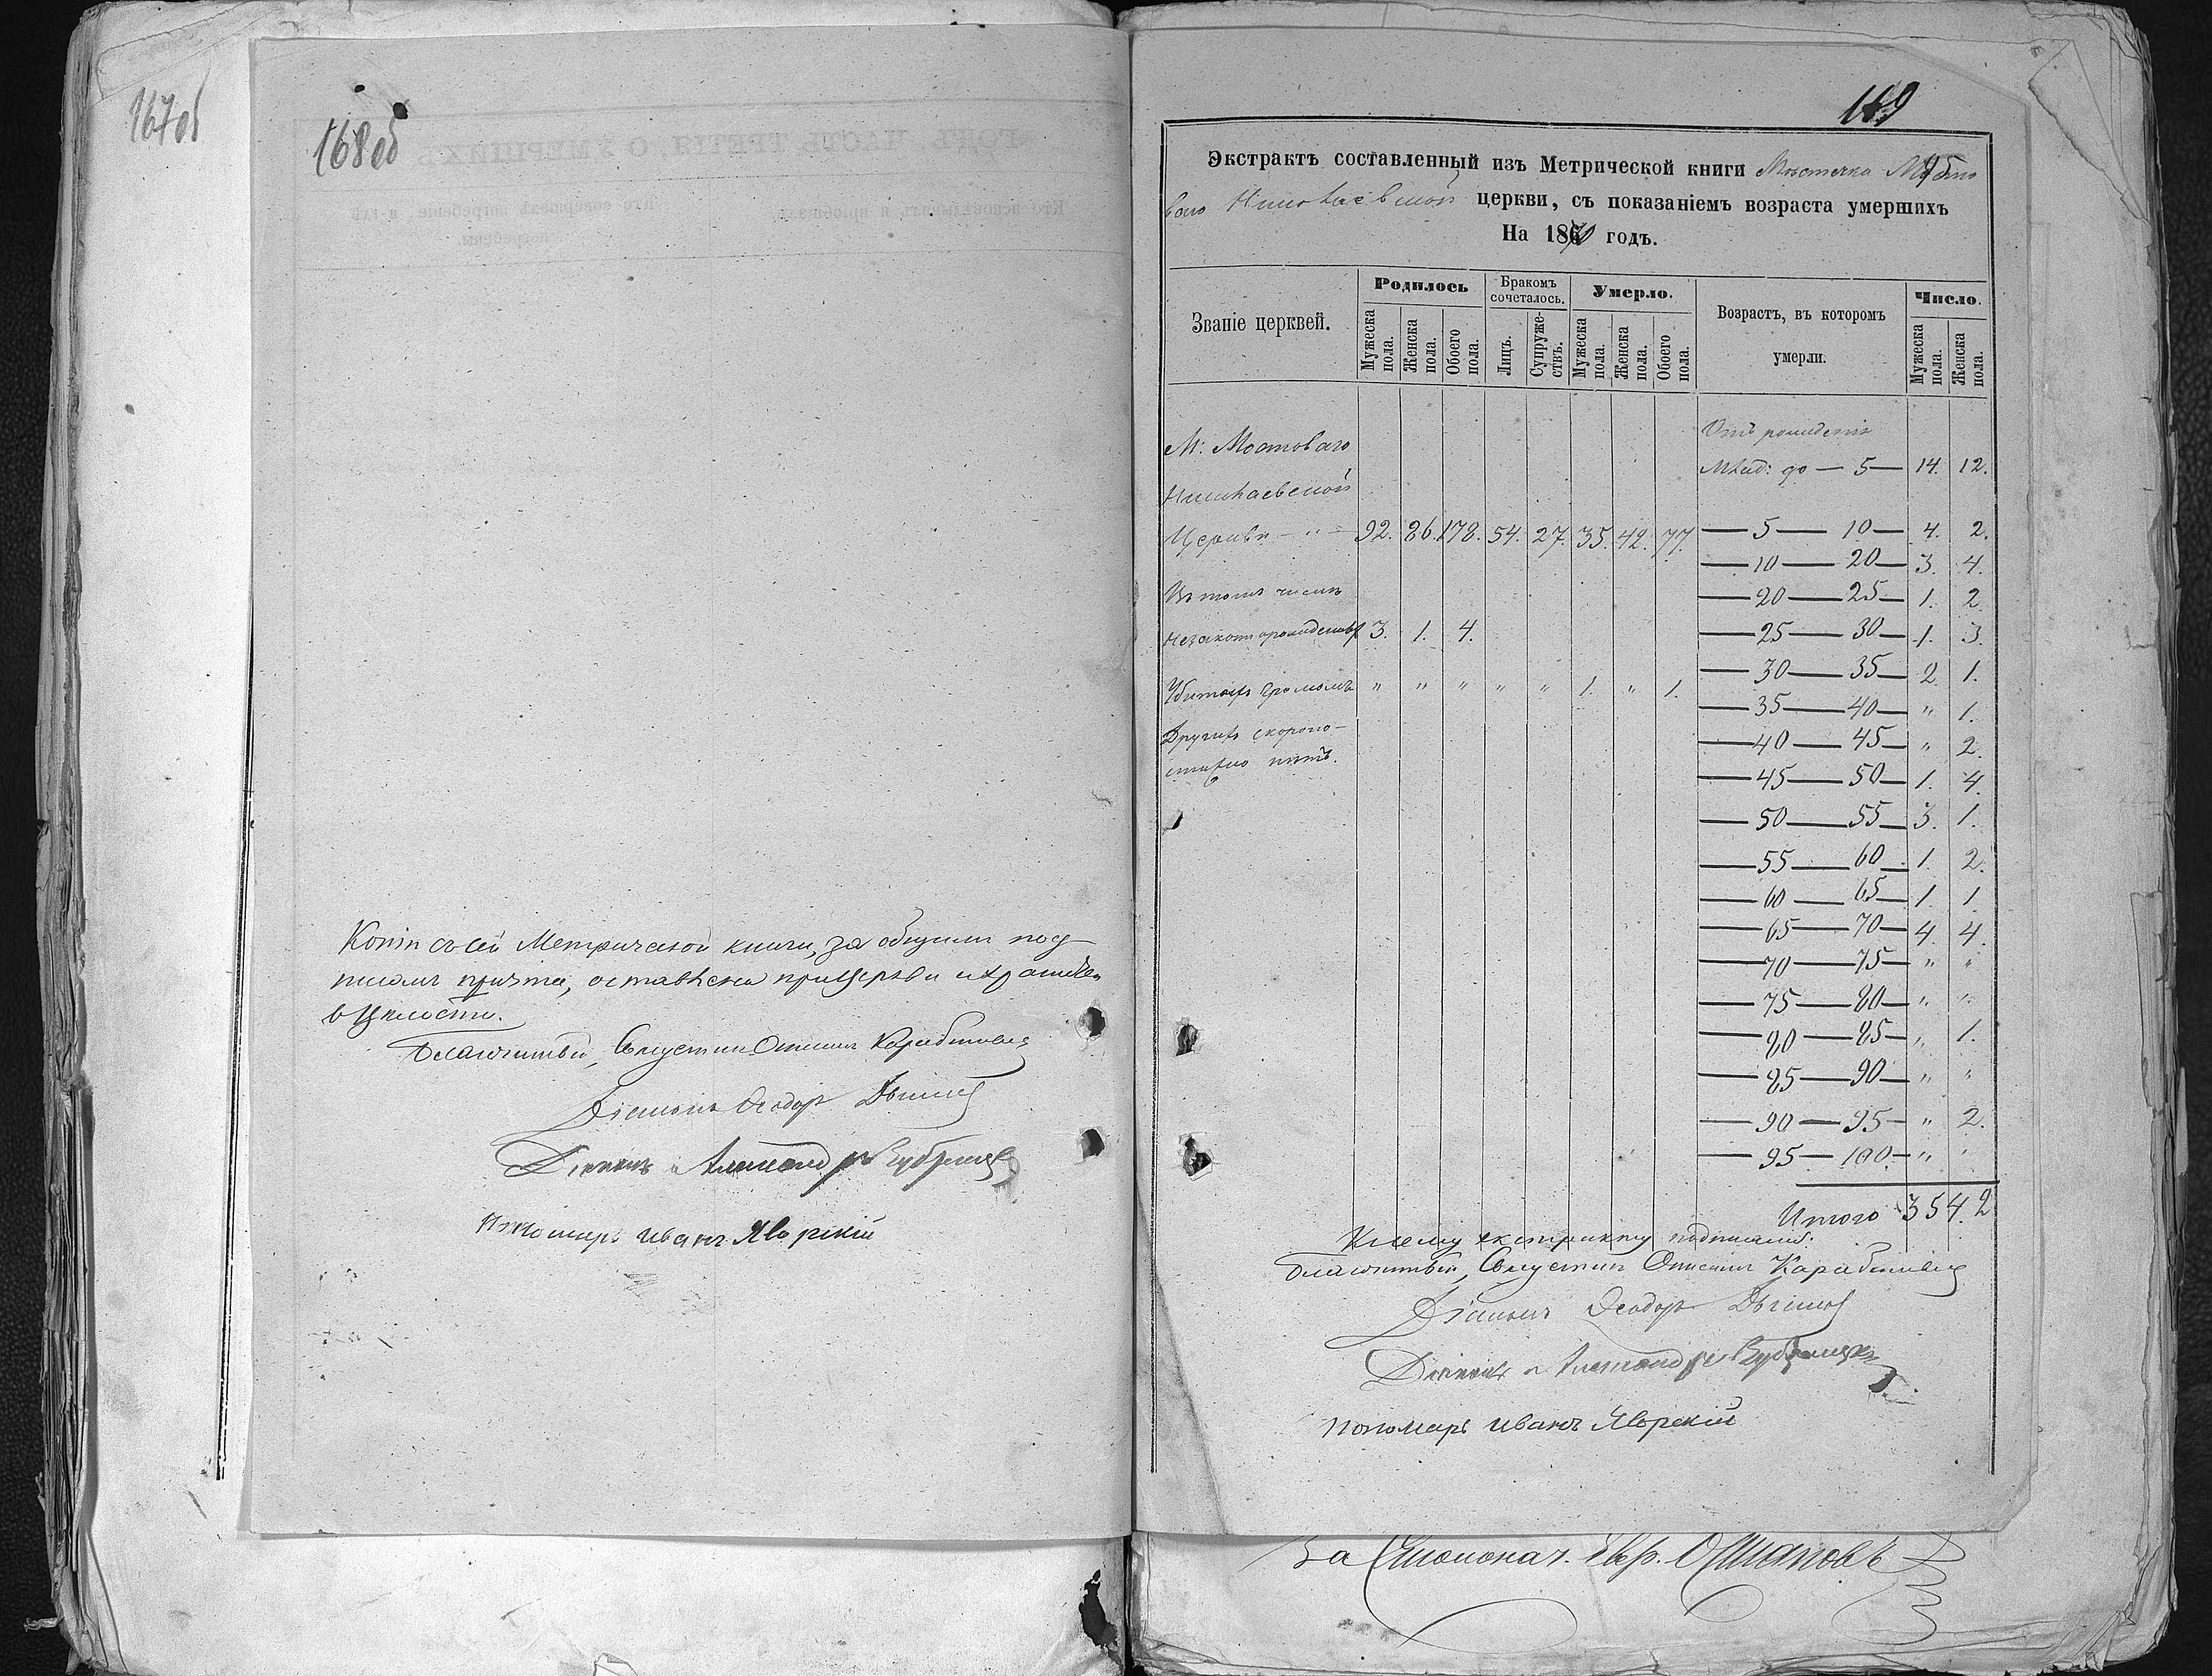 167об
168об
Копія съ сей Метрической книги, за общимъ под-
писомъ причта, оставлена при церкви и хранится
в цѣлости.
Благочинный, Священникъ Карабиневъ
Діаконъ Ѳеодоръ
Дьячекъ Александръ
Пономарь Иванъ Яворскій
169
Экстрактъ составленный изъ Метрической книги Мѣстечка Мосто
ваго Николаевской церкви, съ показаніемъ возраста умершихъ
На 1870 годъ.
Званіе церквей. Родилось Бракомъ сочеталось. Умерло. Возрастъ, въ которомъ умерли. Число.
Мужеска пола. Женска пола. Обоего пола. Лицъ. Супружествъ. Мужеска пола. Женска пола. Обоего пола. Мужеска пола. Женска пола.
М: Мостоваго
Николаевской
Церкви — " — 92. 86. 178. 54. 27. 35. 42. 77.
Въ томъ числѣ
незаконнорожденныхъ 3. 1. 4.
Убитыхъ громомъ " " " " " 1. " 1.
Другихъ скоропо-
стижно нѣтъ.
Отъ рожденія
Млад: до — 5 — 14. 12.
— 5 — 10 — 4. 2.
— 10 — 20 — 3. 4.
— 20 — 25 — 1. 2.
— 25 — 30 — 1. 3.
— 30 — 35 — 2. 1.
— 35 — 40 — " 1.
— 40 — 45 — " 2.
— 45 — 50 — 1. 4.
— 50 — 55 — 3. 1.
— 55 — 60 — 1. 2.
— 60 — 65 — 1. 1.
— 65 — 70 — 4. 4.
— 70 — 75 — " "
— 75 — 80 — " "
— 80 — 85 — " 1.
— 85 — 90 — " "
— 90 — 95 — " 2.
— 95 — 100 — " "
Итого 35 42
К сему екстракту подписались:
Благочинный, Священникъ Карабиневъ
Діаконъ Ѳеодоръ
Дьячекъ Александръ
Пономарь Иванъ Яворскій
За Столонач. Гвр. Османовъ